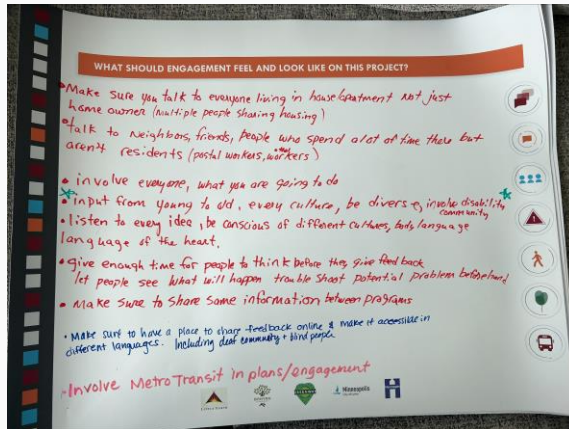 WHAT SHOULD ENGAGEMENT FEEL AND LOOK LIKE ON THIS PROJECT?
• Make sure you talk to everyone living in house/apartment not just
home owner (multiple people sharing housing)
• Talk to Neighbors, friends, people who spend a lot of time there but
aren't residents (postal workers, workers)
• involve everyone, what you are going to do
• input from young to old, every culture, be diverse, involve disability
community
• listen to every idea, be conscious of different cultures, body language
language of the heart.
• Give enough time for people to think before they give feed back
let people see what will happen trouble shoot potential problem beforehand
• Make sure to share same information between programs
• Make sure to have a place to share feedback online & make it accessible in
different languages. Including deaf community + blind people
• Involve Metro Transit in plans/engagement
Minneapolis